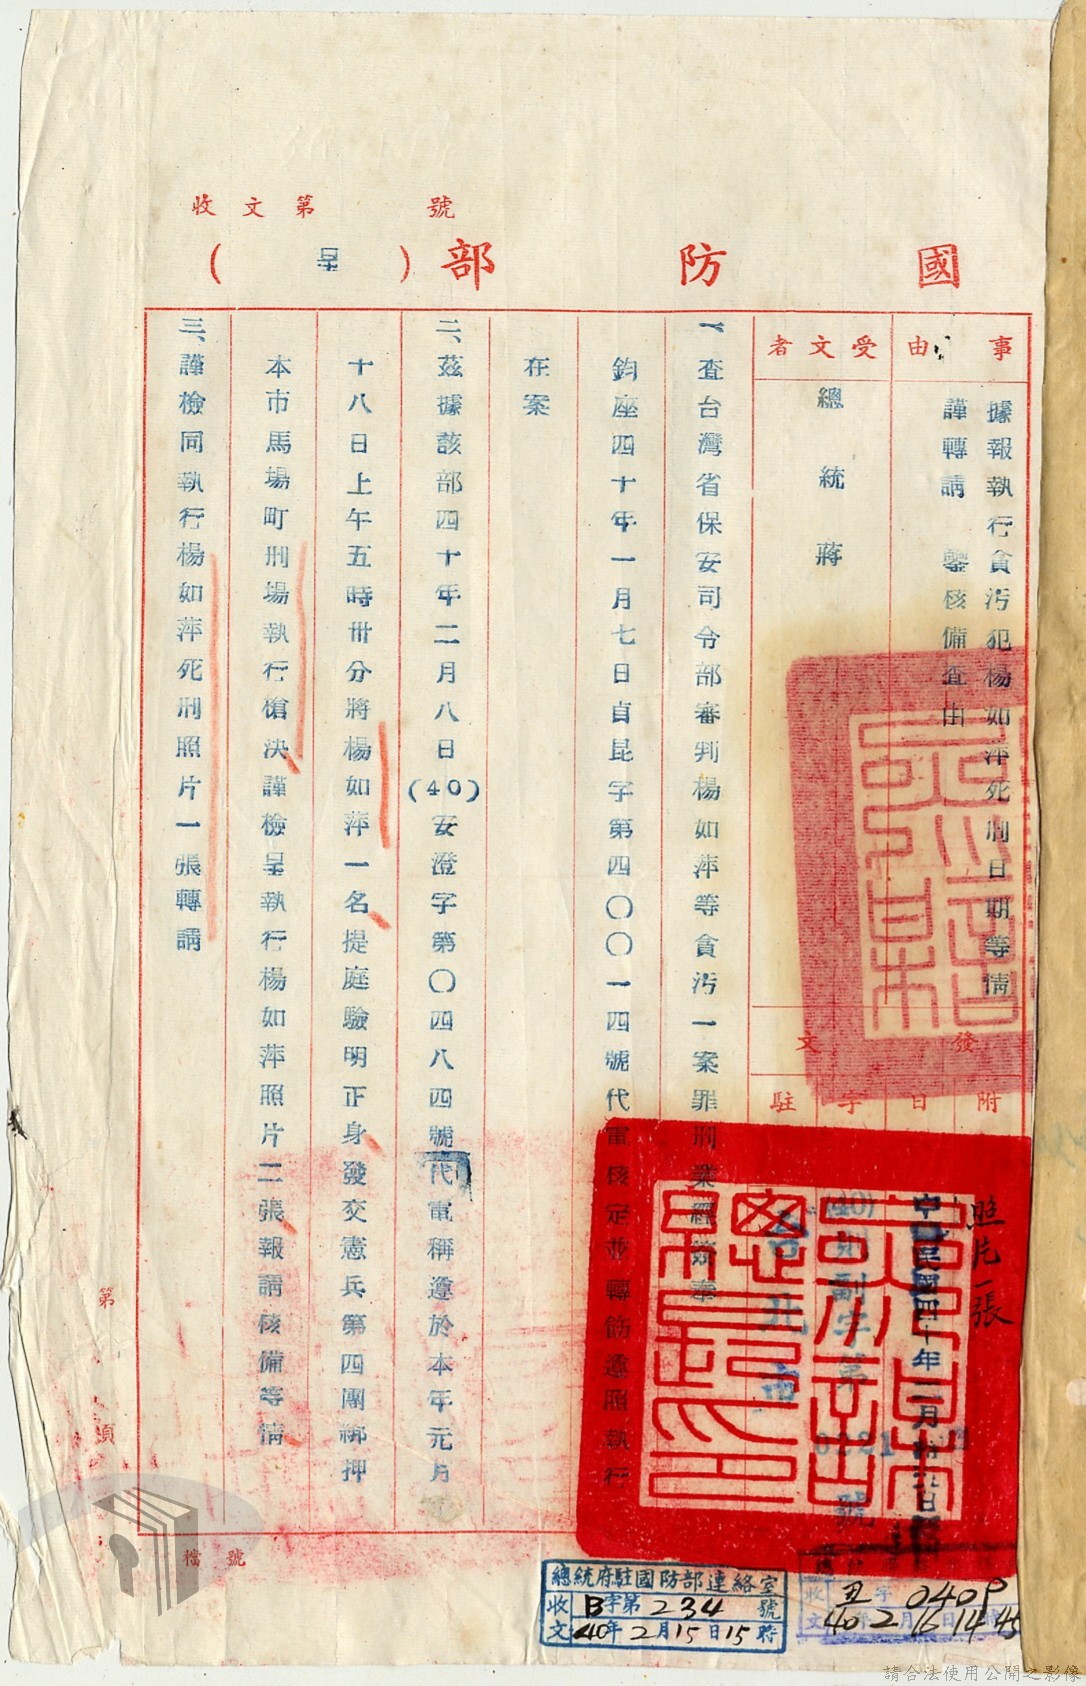 收文第　　號
國防部（呈）
事由
據報執行貪污犯楊如萍死刑日期等情
謹轉請　鑒核備查由
受文者
總統　蔣
發文
附
日
字
駐
照片一張
中華民國四十年二月　日
副字第
0321
號
台北市
一、查台灣省保安司令部審判楊如萍等貪污一案罪刑業經簽奉
鈞座四十年一月七日貞昆字第四〇〇一四號代電核定並轉飭遵照執行
在案
二、茲據該部四十年二月八日(40)安澄字第〇四八四號代電稱遵於本年元月
十八日上午五時卅分將楊如萍一名提庭驗明正身發交憲兵第四團綁押
本市馬場町刑場執行槍決謹檢呈執行楊如萍照片二張報請核備等情
三、謹檢同執行楊如萍死刑照片一張轉請
第　　項
檔號
總統府駐國防部連絡室
收文 B字第234號
40年2月15日15時
收文 丑字0409
40年2月16日14時45
請合法使用公開之影像